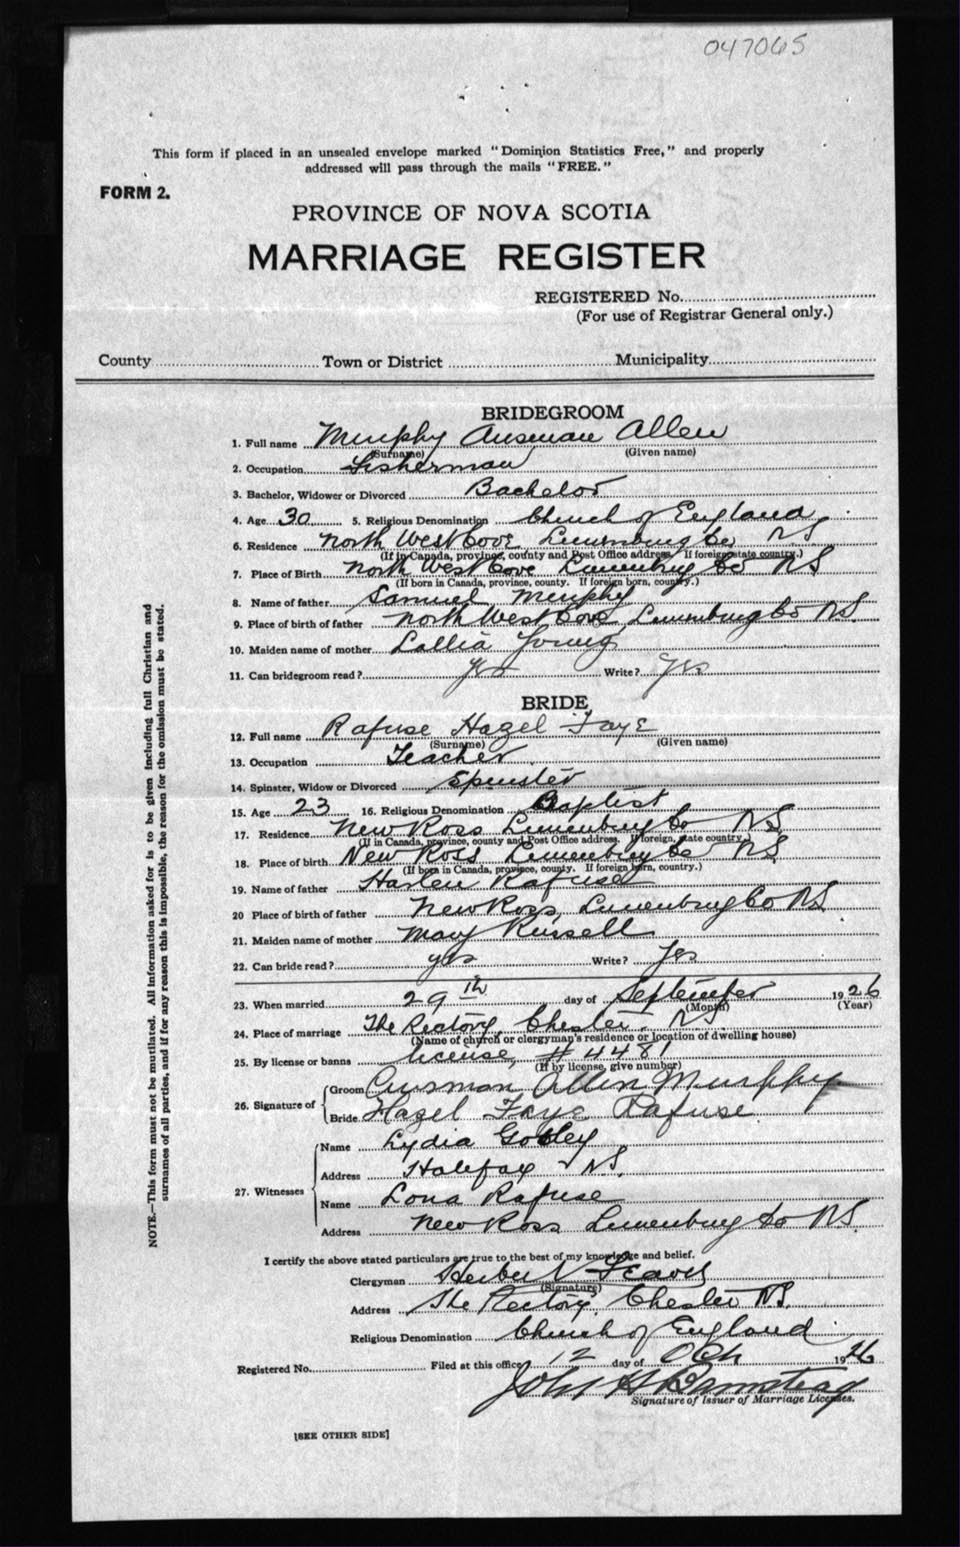 047065
This form if placed in an unsealed envelope marked "Dominion Statistics Free," and properly
addressed will pass through the mails "FREE."
FORM 2.
PROVINCE OF NOVA SCOTIA
MARRIAGE REGISTER
REGISTERED No.
(For use of Registrar General only.)
County Town or District Municipality
BRIDEGROOM
1. Full name Murphy Ausman Allen
(Surname) (Given name)
2. Occupation Fisherman
3. Bachelor, Widower or Divorced Bachelor
4. Age 30 5. Religious Denomination Church of England
6. Residence North West Cove Lunenburg Co NS
(If in Canada, province, county and Post Office address. If foreign state country.)
7. Place of Birth North West Cove Lunenburg Co NS
(If born in Canada, province, county. If foreign born, country.)
8. Name of father Samuel Murphy
9. Place of birth of father North West Cove, Lunenburg Co N.S.
10. Maiden name of mother Lallia Young
11. Can bridegroom read? yes Write? Yes
BRIDE
12. Full name Rafuse Hazel Faye
(Surname) (Given name)
13. Occupation Teacher
14. Spinster, Widow or Divorced Spinster
15. Age 23 16. Religious Denomination Baptist
17. Residence New Ross Lunenburg Co NS
(If in Canada, province, county and Post Office address. If foreign, state country.)
18. Place of birth New Ross Lunenburg Co NS
(If born in Canada, province, county. If foreign born, country.)
19. Name of father Harlen Rafuse
20 Place of birth of father New Ross, Lunenburg Co NS
21. Maiden name of mother Mary Russell
22. Can bride read? yes Write? Yes
23. When married 29th day of September 1926
(Month) (Year)
24. Place of marriage The Rectory, Chester, NS
(Name of church or clergyman's residence or location of dwelling house)
25. By license or banns license, #4481
(If by license, give number)
26. Signature of
Groom Ausman Allen Murphy
Bride Hazel Faye Rafuse
27. Witnesses
Name Lydia
Address Halifax NS.
Name Lona Rafuse
Address New Ross Lunenburg Co NS.
I certify the above stated particulars are true to the best of my knowledge and belief.
Clergyman
(Signature)
Address The Rectory, Chester N.S.
Religious Denomination Church of England
Registered No. Filed at this office 12 day of Oct 1926
John H
Signature of Issuer of Marriage Licenses.
[SEE OTHER SIDE]
NOTE.—This form must not be mutilated. All information asked for is to be given including full Christian and
surnames of all parties, and if for any reason this is impossible, the reason for the omission must be stated.